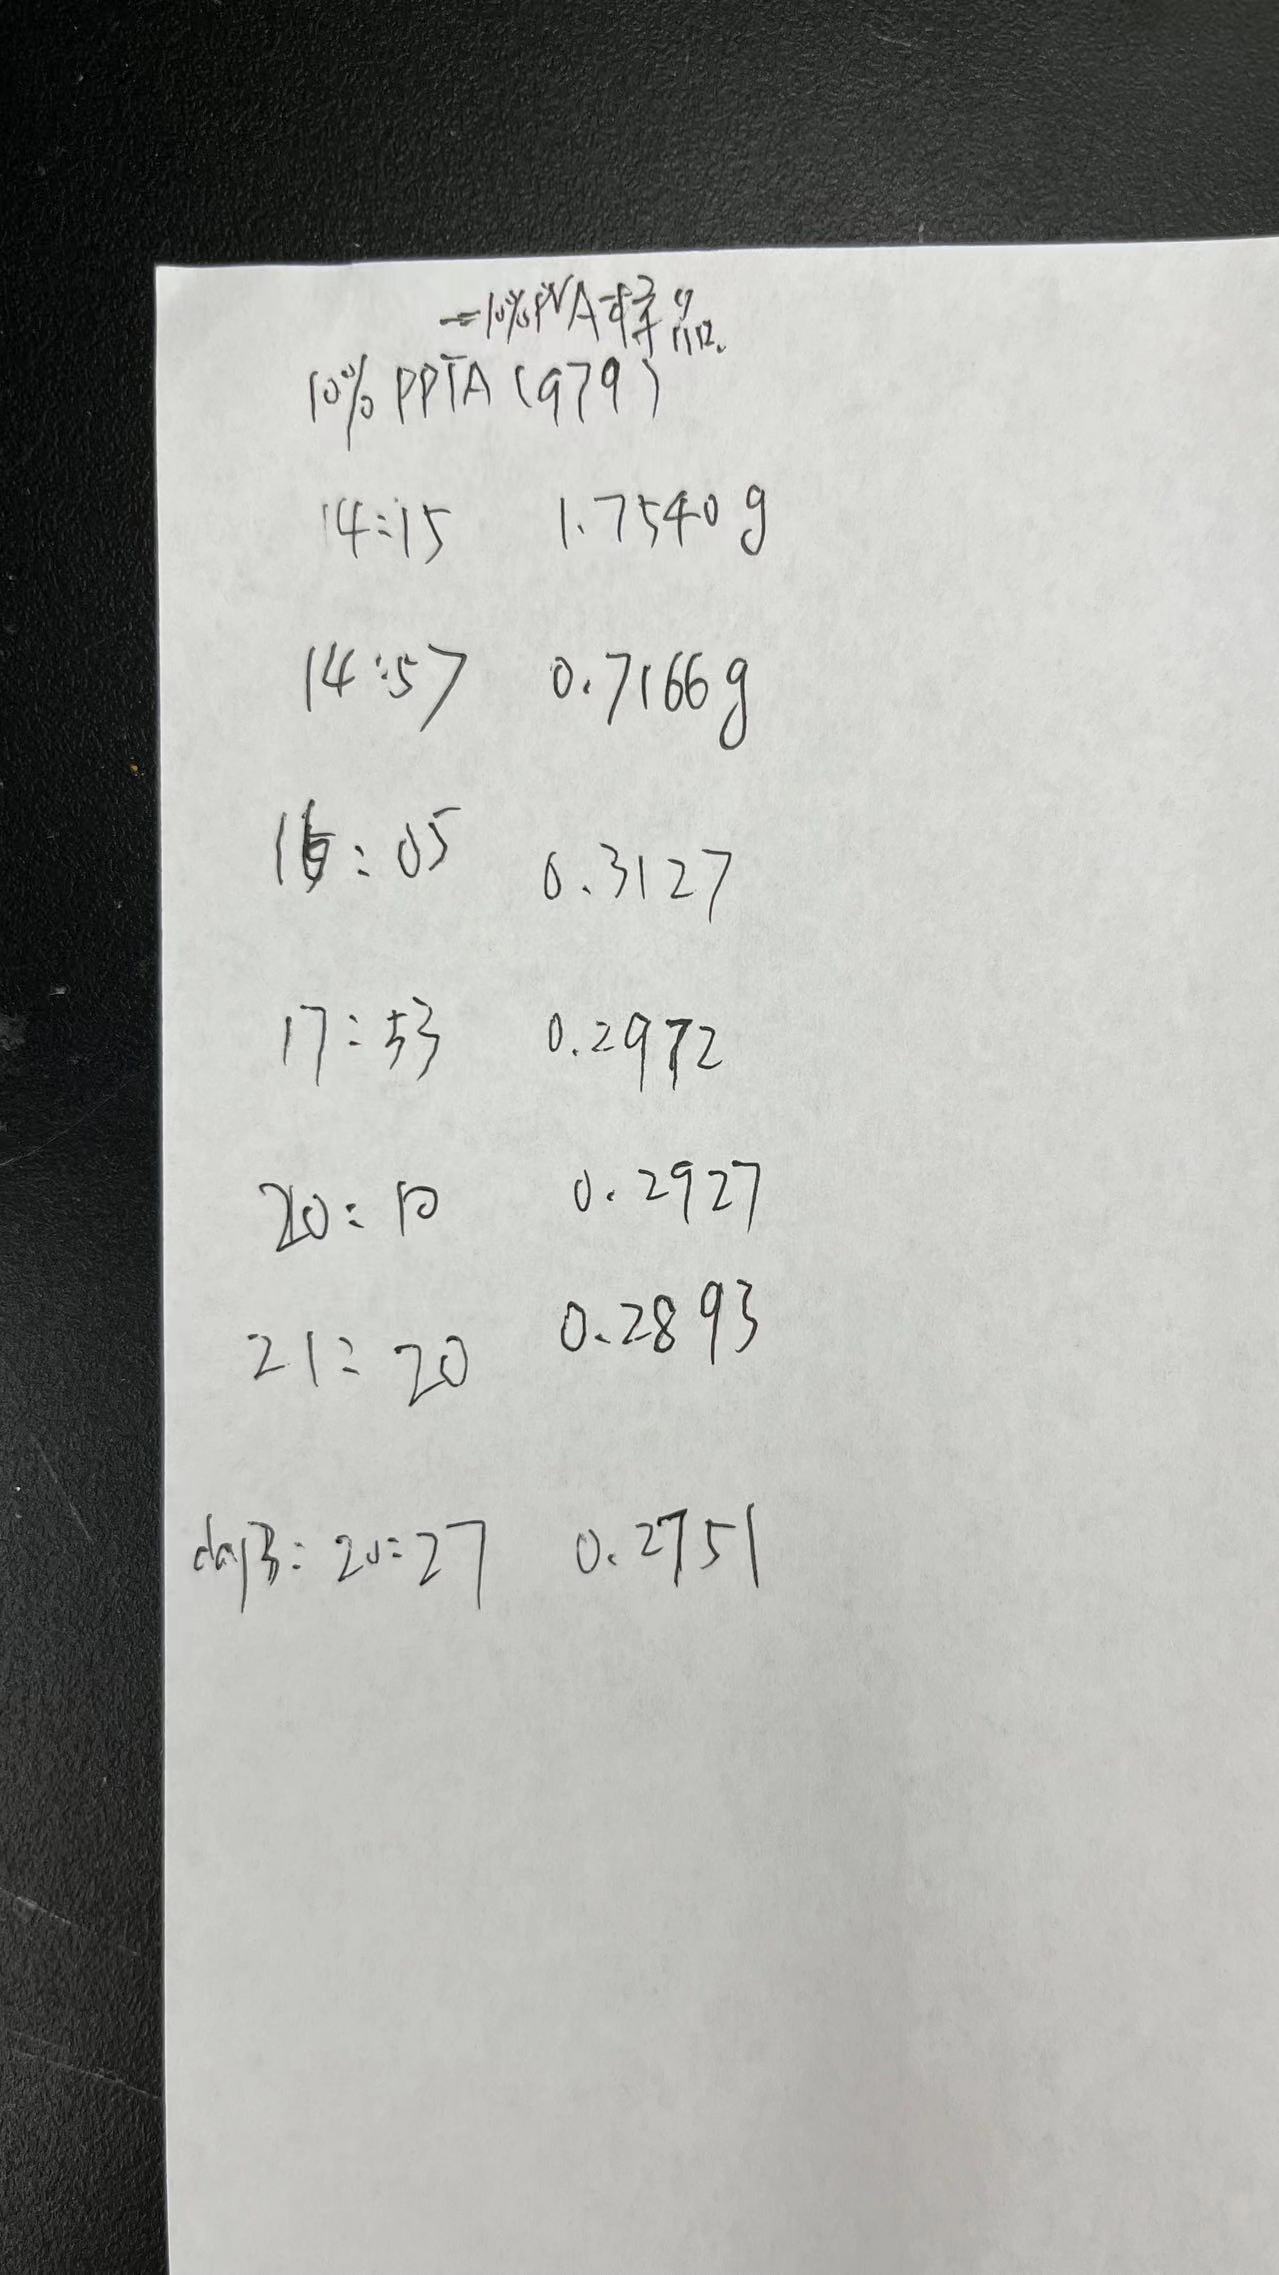 10%PVA
10% PPTA (979)
14:15 1.7540g
14:57 0.7166g
16:05 0.3127
17:53 0.2972
20:10 0.2927
21:20 0.2893
day3: 20:27 0.2751